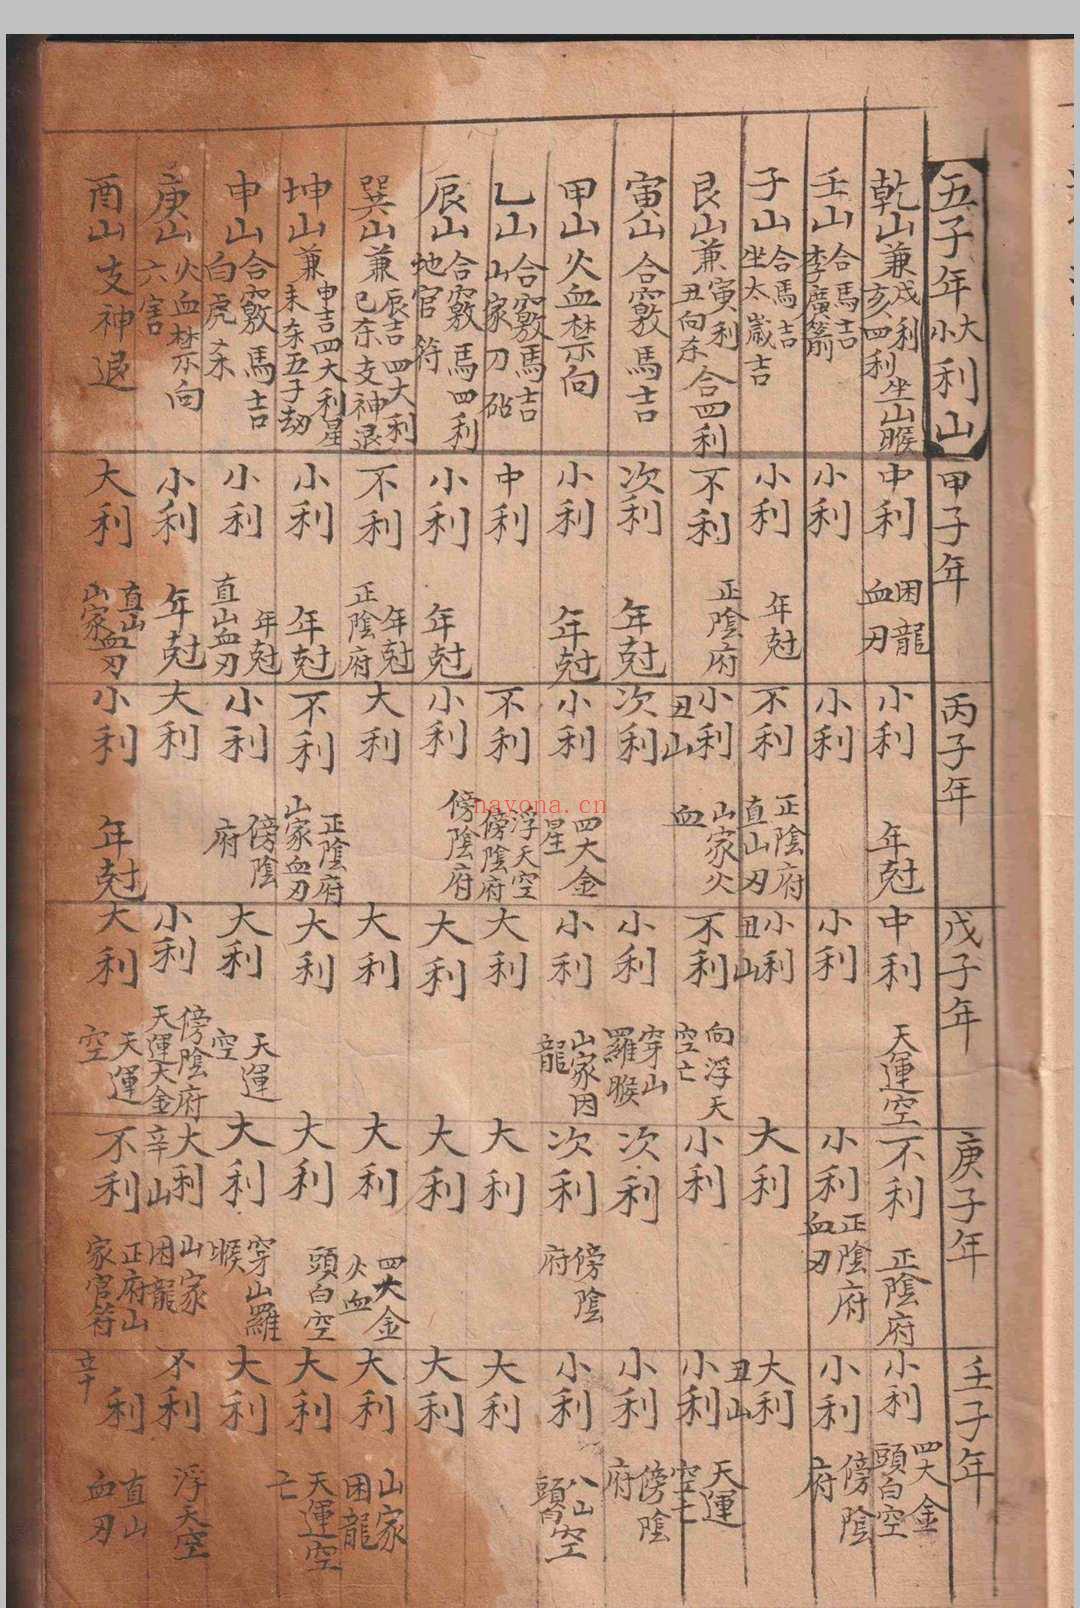 五子年大小利山
甲子年
丙子年
戊子年
庚子年
壬子年
乾山兼戊利亥四利坐山睺
中利 困龍血刃
小利 年尅
中利 天運空
不利 正陰府
小利 四大金頭白空
壬山合馬吉李廣箭
小利
小利
小利
小利 正陰府血刃
小利 傍陰府
子山合馬吉坐太歲吉
小利 年尅
不利 正陰府直山刃
小利丑山
大利
大利丑山
艮山兼寅利丑向杀合四利
不利 正陰府
小利丑山 山家火血
不利 向浮天空亡
小利
小利 天運空亡
寅山合竅馬吉
次利 年尅
次利
小利 穿山羅睺
次利
小利 傍陰府
甲山火血禁向
小利 年尅
小利 四大金星
小利 山家因龍
次利 傍陰府
小利 八山頭白空
乙山合竅馬吉山家刀砧
中利
不利 浮天空傍陰府
大利
大利
大利
辰山合竅馬四利地官符
小利 年尅
小利 傍陰府
大利
大利
大利
巽山兼辰吉四大利巳杀支神退
不利 年尅正陰府
大利
大利
大利 四大金火血
大利 山家困龍
坤山兼申吉四大利星未杀五子劫
小利 年尅
不利 正陰府山家血刃
大利
大利 頭白空
大利 天運空亡
申山合竅馬吉白虎杀
小利 年尅直山血刃
小利 傍陰府
大利 天運空
大利 穿山羅睺
大利
庚山火血禁向六害
小利 年尅
大利
小利 傍陰府天運大金
大利辛山 山家困龍
不利 浮天空
酉山支神退
大利 直山血刃山家
小利 年尅
大利 天運空
不利 正府山家官符
利辛 直山血刃
nayona.cn